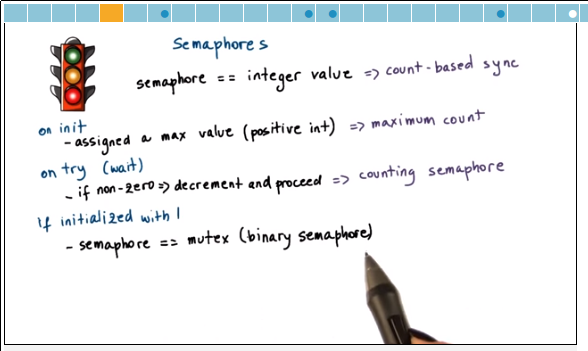 Semaphores
semaphore == integer value => count-based sync
on init
- assigned a max value (positive int) => maximum count
on try (wait)
- if non-zero => decrement and proceed => counting semaphore
If initialized with 1
- semaphore == mutex (binary semaphore)